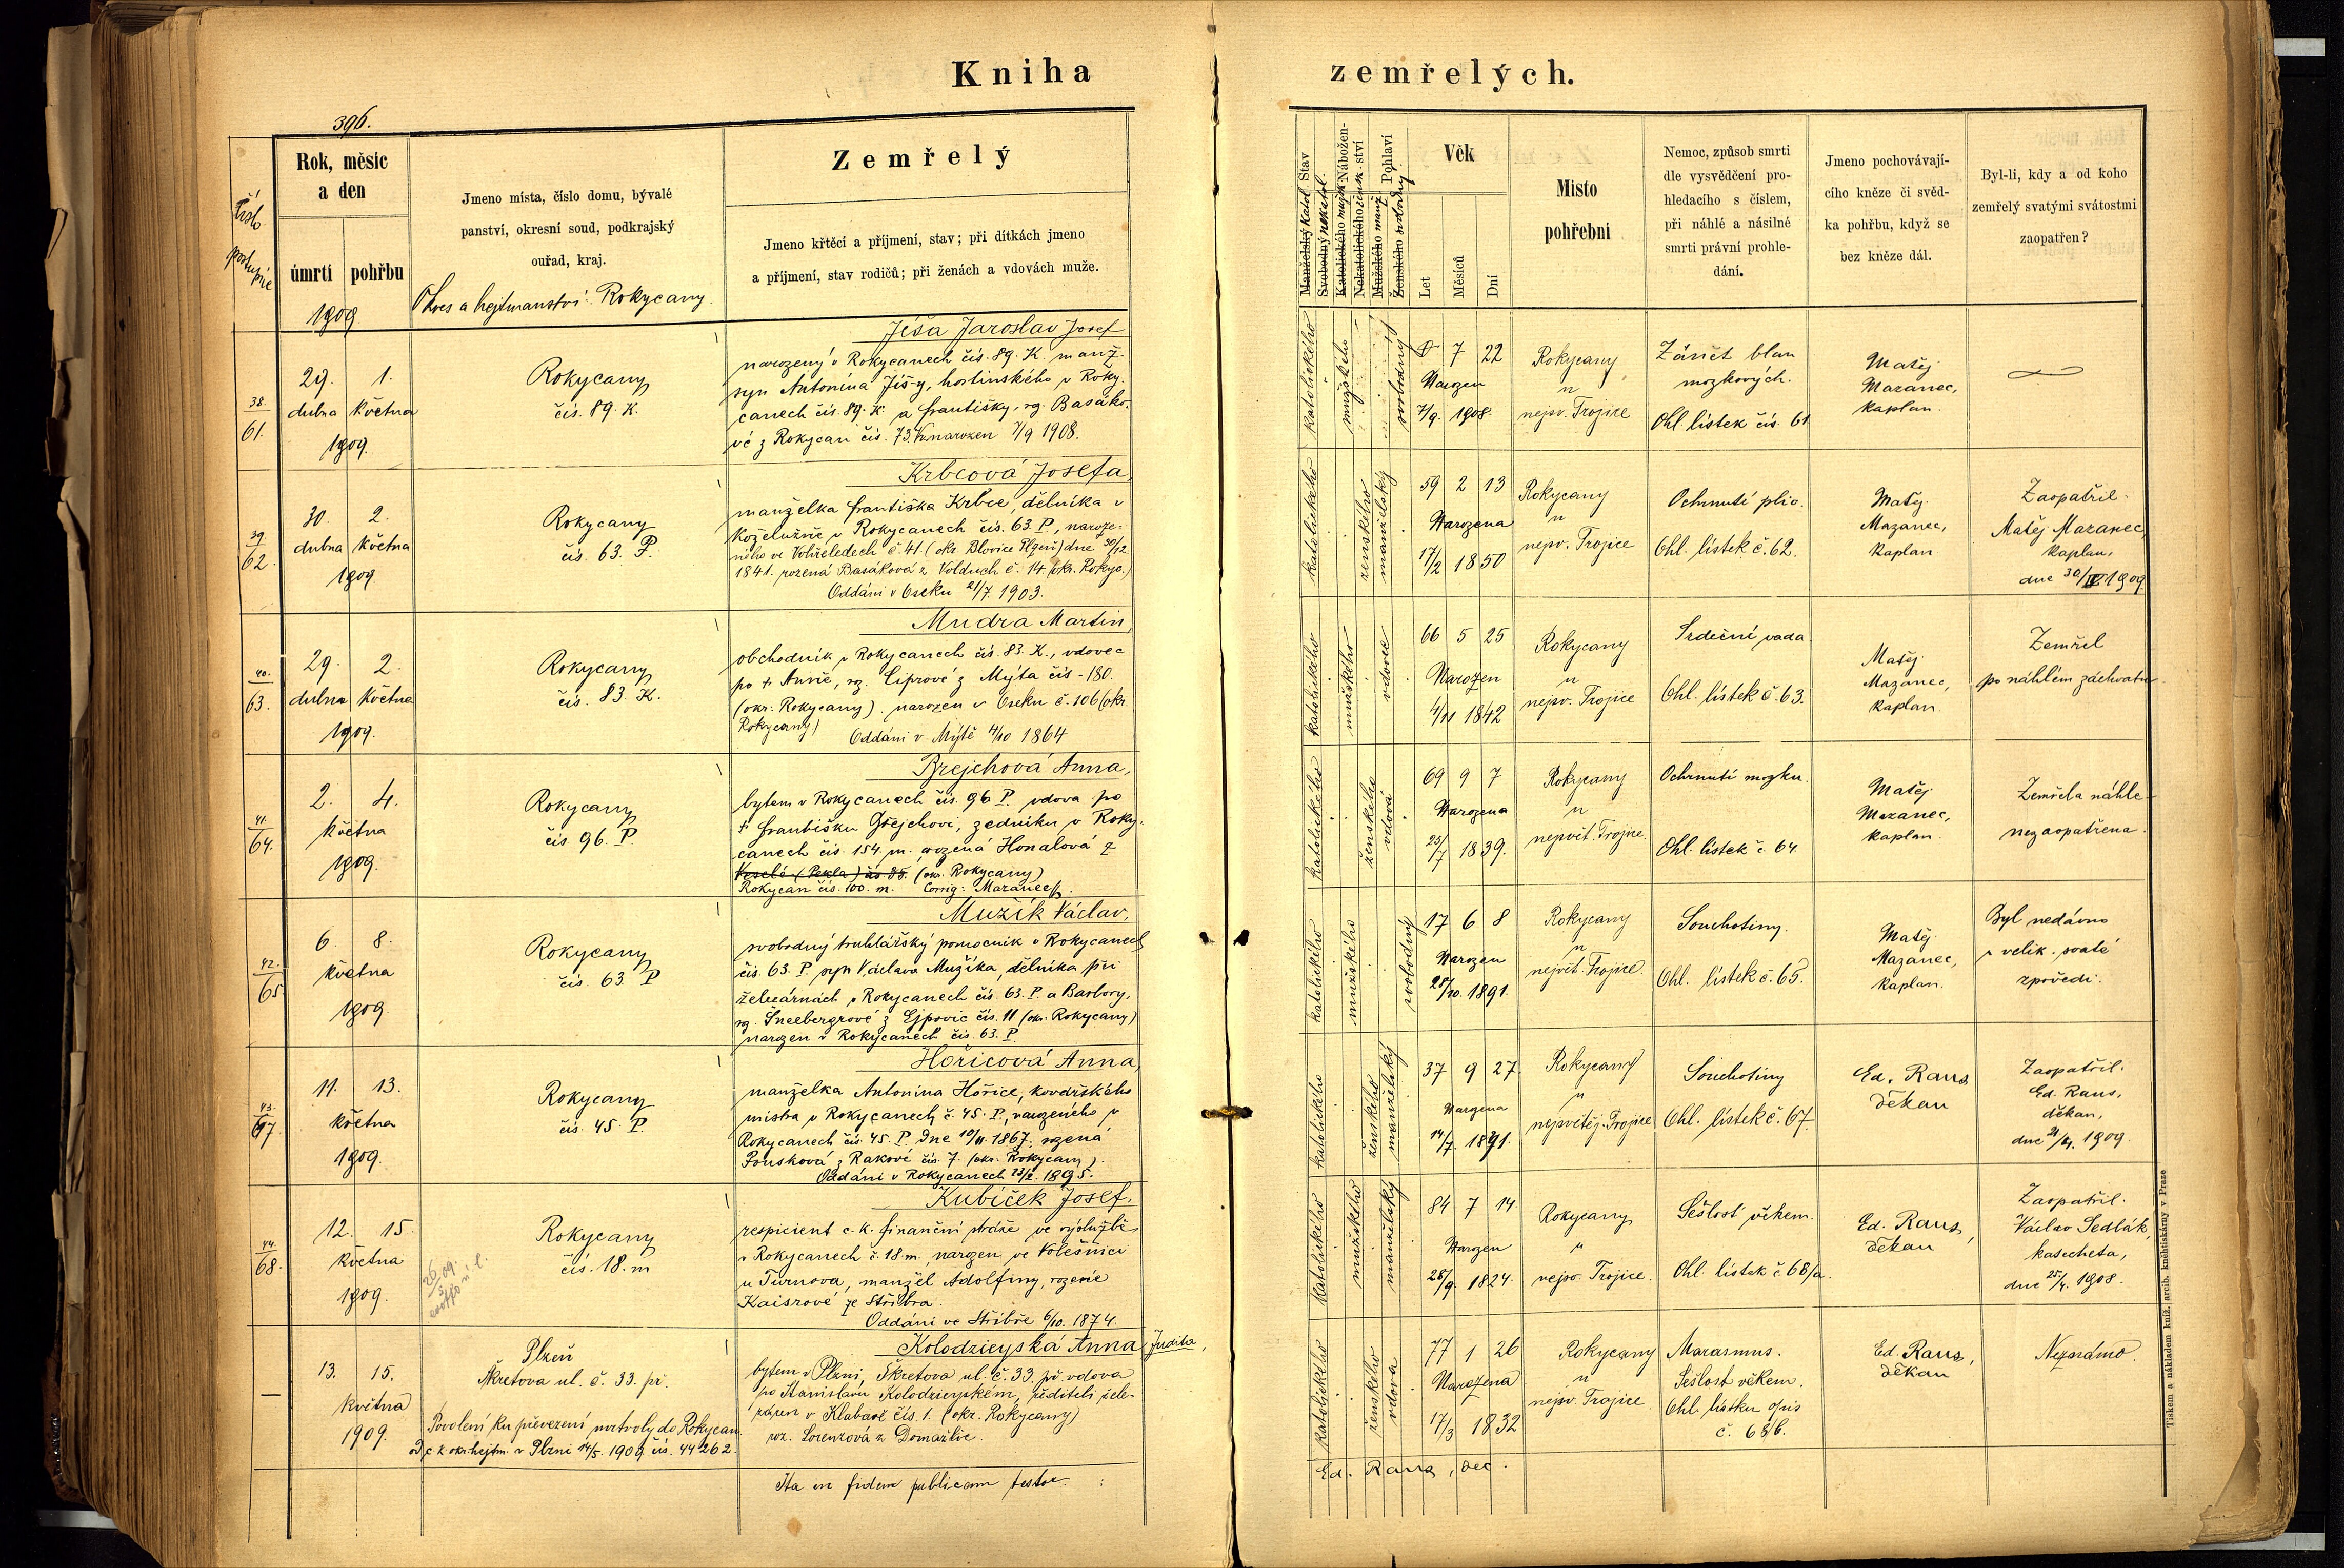 Kniha zemřelých.
396.
Číslo
postupné
Rok, měsíc
a den
úmrtí
pohřbu
1909.
Jmeno místa, číslo domu, bývalé
panství, okresní soud, podkrajský
ouřad, kraj.
Okres a hejtmanství: Rokycany.
Zemřelý
Jmeno křtěcí a příjmení, stav; při dítkách jmeno
a příjmení, stav rodičů; při ženách a vdovách muže.
Manželský katol. Stav
Svobodný nekatol.
Katolického mužsk. Nábožen-
Nekatolického žensk. ství
Mužského manž. Pohlaví
Ženského svobodný
Věk
Let
Měsíců
Dní
Místo
pohřební
Nemoc, způsob smrti
dle vysvědčení pro-
hledacího s číslem,
při náhlé a násilné
smrti právní prohle-
dání.
Jmeno pochovávají-
cího kněze či svěd-
ka pohřbu, když se
bez kněze dál.
Byl-li, kdy a od koho
zemřelý svatými svátostmi
zaopatřen?
38.
61.
29. 1.
dubna května
1909.
Rokycany
čís. 89. K.
Jíša Jaroslav Josef
narozený v Rokycanech čís. 89. K. manž.
syn Antonína Jíšy, hostinského v Roky-
canech čís. 89. K. a Františky, roz. Basáko-
vé z Rokycan čís. 73. K. narozen 7/9 1908.
katolického
mužského
svobodný
0 7 22
Narozen
7/9. 1908.
Rokycany
u
nejsv. Trojice
Zánět blan
mozkových.
Ohl. lístek čís. 61
Matěj
Mazanec,
kaplan.
39.
62.
30. 2.
dubna května
1909
Rokycany
čís. 63. P.
Krbcová Josefa,
manželka Františka Krbce, dělníka v
koželužně v Rokycanech čís. 63. P., naroze-
ného ve Vohřeledech č. 41. (okr. Blovice Plzeň) dne 30/12
1841. rozená Basáková z Volduch č. 14 (okr. Rokyc.)
Oddáni v Oseku 21/7. 1903.
katolického
ženského
manželský
59 2 13
Narozena
17/2 1850
Rokycany
u
nejsv. Trojice
Ochrnutí plic.
Ohl. lístek č. 62.
Matěj
Mazanec,
kaplan
Zaopatřil
Matěj Mazanec,
kaplan,
dne 30/IV 1909
40.
63.
29. 2.
dubna května
1909.
Rokycany
čís. 83. K.
Mudra Martin,
obchodník v Rokycanech čís. 83. K., vdovec
po † Anně, roz. Ciprové z Mýta čís. 180.
(okr. Rokycany). narozen v Oseku č. 106 (okr.
Rokycany)
Oddáni v Mýtě 4/10 1864
katolického
mužského
vdovec
66 5 25
Narozen
4/11 1842
Rokycany
u
nejsv. Trojice
Srdeční vada
Ohl. lístek č. 63.
Matěj
Mazanec,
kaplan
Zemřel
po náhlém záchvatu.
41.
64.
2. 4.
května
1909.
Rokycany
čís. 96. P.
Brejchová Anna,
bytem v Rokycanech čís. 96 P. vdova po
† Františku Brejchovi, zedníku v Roky-
canech čís. 154. m. rozená Honalová z
Veselé (Pekla) čís 85. (okr. Rokycany)
Rokycan čís. 100. m. Corrig: Mazanec
katolického
ženského
vdova
69 9 7
Narozena
25/7 1839.
Rokycany
u
nejsvět. Trojice.
Ochrnutí mozku.
Ohl. lístek č. 64.
Matěj
Mazanec,
kaplan.
Zemřela náhle
nezaopatřena.
42.
65.
6. 8.
května
1909
Rokycany
čís. 63. P
Mužík Václav,
svobodný truhlářský pomocník v Rokycanech
čís. 63. P. syn Václava Mužíka, dělníka při
železárnách v Rokycanech čís. 63. P. a Barbory,
roz. Šneebergrové z Ejpovic čís. 11 (okr. Rokycany)
narozen v Rokycanech čís. 63. P.
katolického
mužského
svobodný
17 6 8
Narozen
28/10. 1891.
Rokycany
u
nejsvět. Trojice.
Souchotiny.
Ohl. lístek č. 65.
Matěj
Mazanec,
kaplan.
Byl nedávno
u velik. svaté
zpovědi.
43.
67.
11. 13.
května
1909.
Rokycany
čís. 45. P.
Hořicová Anna,
manželka Antonína Hořice, kovářského
mistra v Rokycanech č. 45. P., narozeného v
Rokycanech čís. 45. P. dne 10/11. 1867. rozená
Poušková z Rakové čís. 7. (okr. Rokycany).
Oddáni v Rokycanech 1895.
katolického
ženského
manželský
37 9 27
Narozena
14/7. 1871.
Rokycany
u
nejsvětěj. Trojice
Souchotiny
Ohl. lístek č. 67.
Ed. Raus
děkan
Zaopatřil
Ed. Raus,
děkan,
dne 21/4. 1909.
44.
68.
12. 15.
května
1909.
26/5 09.
Rokycany
čís. 18. m
Kubíček Josef,
respicient c. k. finanční stráže ve výslužbě
v Rokycanech č. 18. m., narozen ve Volešnici
u Turnova, manžel Adolfiny, rozené
Kaisrové ze Stříbra.
Oddáni ve Stříbře 6/10. 1874.
katolického
mužského
manželský
84 7 14.
Narozen
28/9 1824.
Rokycany
u
nejsv. Trojice.
Sešlost věkem.
Ohl. lístek č. 68/a.
Ed. Raus,
děkan
Zaopatřil
Václav Sedlák,
katecheta,
dne 25/4. 1908.
13. 15.
května
1909.
Plzeň
Škretova ul. č. 33. př.
Povolení ku převezení mrtvoly do Rokycan
od c. k. okr. hejtm. v Plzni 14/5. 1909 čís. 44262.
Kolodzieyská Anna Judita,
bytem v Plzni, Škretova ul. č. 33. př. vdova
po Stanislavu Kolodzieyském, řediteli žele-
záren v Klabavě čís. 1. (okr. Rokycany)
roz. Lorenzová z Domažlic.
katolického
ženského
vdova
77 1 26
Narozena
17/3 1832
Rokycany
u
nejsv. Trojice
Marasmus.
Sešlost věkem.
Ohl. lístku opis
č. 68/b.
Ed. Raus,
děkan
Neznámo.
Ita in fidem publicam testor:
Ed. Raus, dec.
Tiskem a nákladem kníž. arcib. knihtiskárny v Praze